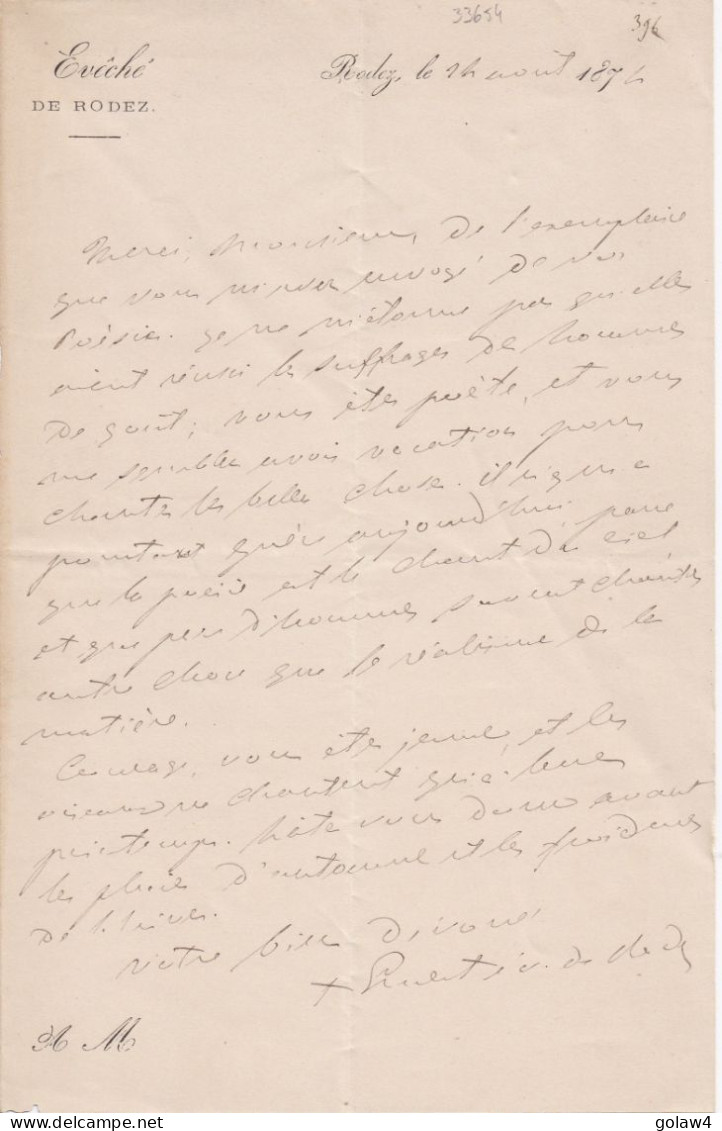 33654
396
Evêché
DE RODEZ.
Rodez, le 24 août 187
Merci, Monsieur, de l'exemplaire
que vous m'avez envoyé de vos
Poésies. Je ne m'étonne pas qu'elles
aient réuni les suffrages des hommes
de goût; vous êtes poète, et vous
me semblez avoir vocation pour
chanter les belles choses.
pourtant guère aujourd'hui, parce
que la poésie est le chant du ciel
et que peu d'hommes savent chanter
autre chose que le réalisme de la
matière.
Courage, vous êtes jeune, et les
oiseaux ne chantent qu'à leur
printemps. hâtez vous donc avant
les pluies d'automne et les froidures
de l'hiver.
Votre bien dévoué
+ Ernest év. de Rodez
A M
delcampe.net
golaw4